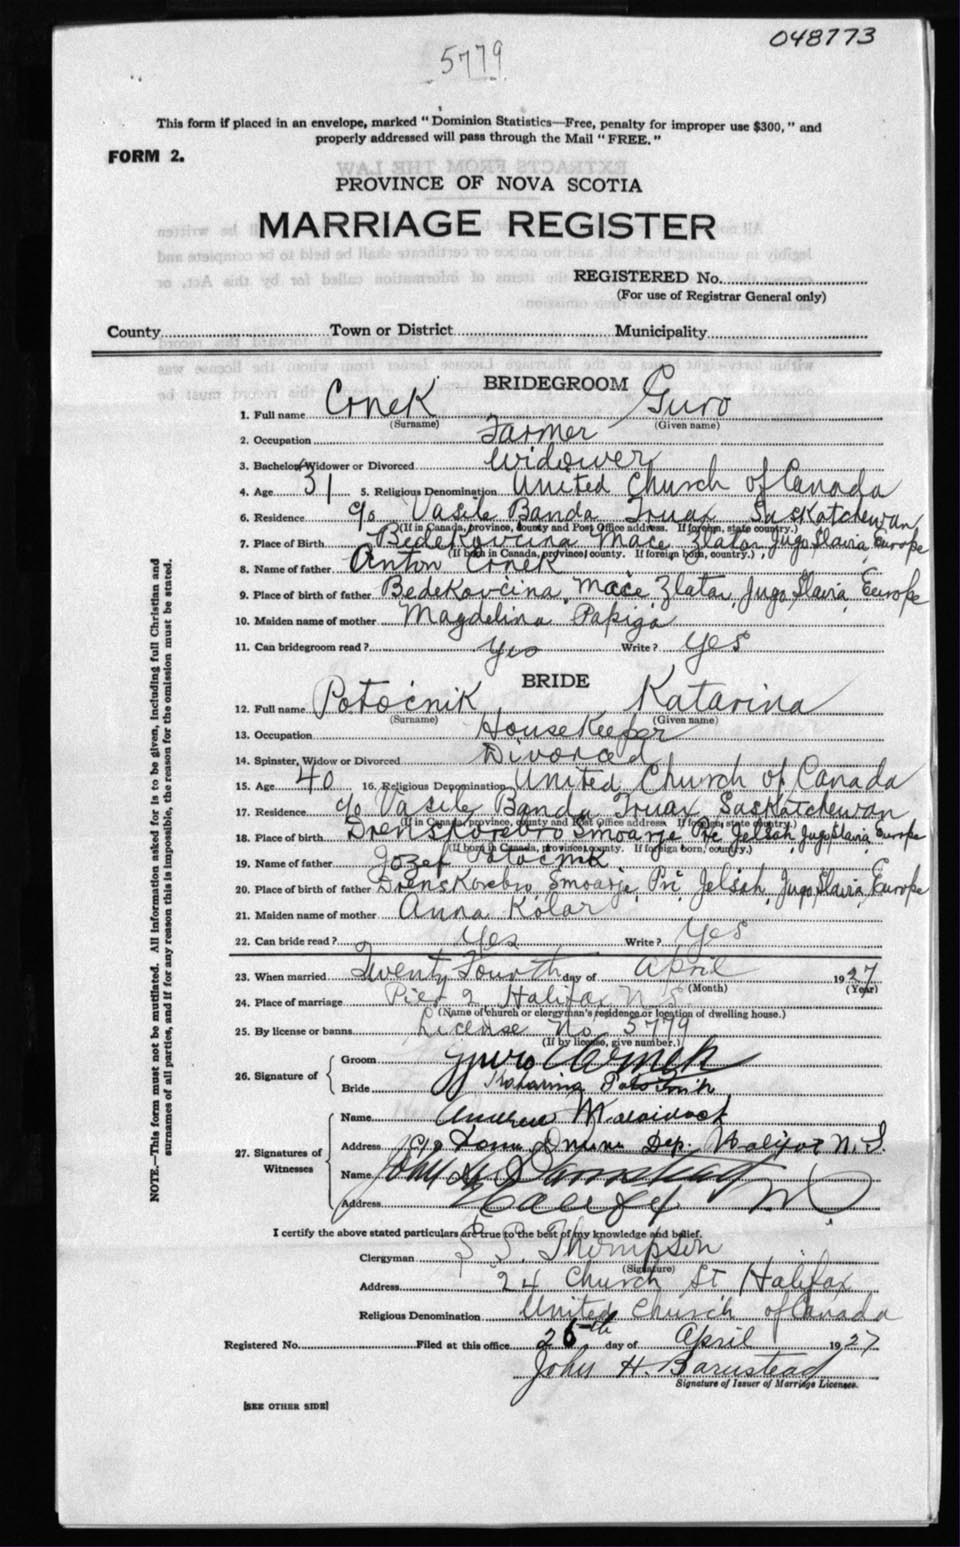 048773
5779
This form if placed in an envelope, marked "Dominion Statistics—Free, penalty for improper use $300," and
properly addressed will pass through the Mail "FREE."
FORM 2.
PROVINCE OF NOVA SCOTIA
MARRIAGE REGISTER
REGISTERED No.
(For use of Registrar General only)
County Town or District Municipality
BRIDEGROOM
1. Full name Crnek Guro
(Surname) (Given name)
2. Occupation Farmer
3. Bachelor, Widower or Divorced Widower
4. Age 31 5. Religious Denomination United Church of Canada
6. Residence c/o Vasile Banda Truax Saskatchewan
(If in Canada, province, county and Post Office address. If foreign, state country.)
7. Place of Birth Bedekovcina Mace Zlatar Jugo Slavia, Europe
(If born in Canada, province, county. If foreign born, country.)
8. Name of father Anton Crnek
9. Place of birth of father Bedekovcina, Mace Zlatar, Jugo Slavia, Europe
10. Maiden name of mother Magdelina Papiga
11. Can bridegroom read? Yes Write? Yes
BRIDE
12. Full name Potocnik Katarina
(Surname) (Given name)
13. Occupation House Keeper
14. Spinster, Widow or Divorced Divorced
15. Age 40 16. Religious Denomination United Church of Canada
17. Residence c/o Vasile Banda Truax Saskatchewan
(If in Canada, province, county and Post Office address. If foreign, state country.)
18. Place of birth Smoarje Jelsah, Jugo Slavia, Europe
(If born in Canada, province, county. If foreign born, country.)
19. Name of father Jozef Potocnik
20. Place of birth of father Drenskorebro, Smoarje, Pri Jelsah, Jugo Slavia, Europe
21. Maiden name of mother Anna Kolar
22. Can bride read? Yes Write? Yes
23. When married Twenty Fourth day of April 1927
(Month) (Year)
24. Place of marriage Pier 2 Halifax N.S.
(Name of church or clergyman's residence or location of dwelling house.)
25. By license or banns License No. 5779
(If by license, give number.)
26. Signature of Groom Gjuro Crnek
Bride Katarina Potocnik
27. Signatures of Witnesses
Name Andrew
Address c/o Dep. Halifax N.S.
Name John H Barnstead
Address Halifax N S
I certify the above stated particulars are true to the best of my knowledge and belief.
Clergyman Thompson
(Signature)
Address 24 Church St Halifax
Religious Denomination United Church of Canada
Registered No. Filed at this office 26th day of April 1927
John H. Barnstead
Signature of Issuer of Marriage Licenses.
[SEE OTHER SIDE]
NOTE.—This form must not be mutilated. All information asked for is to be given, including full Christian and
surnames of all parties, and if for any reason this is impossible, the reason for the omission must be stated.